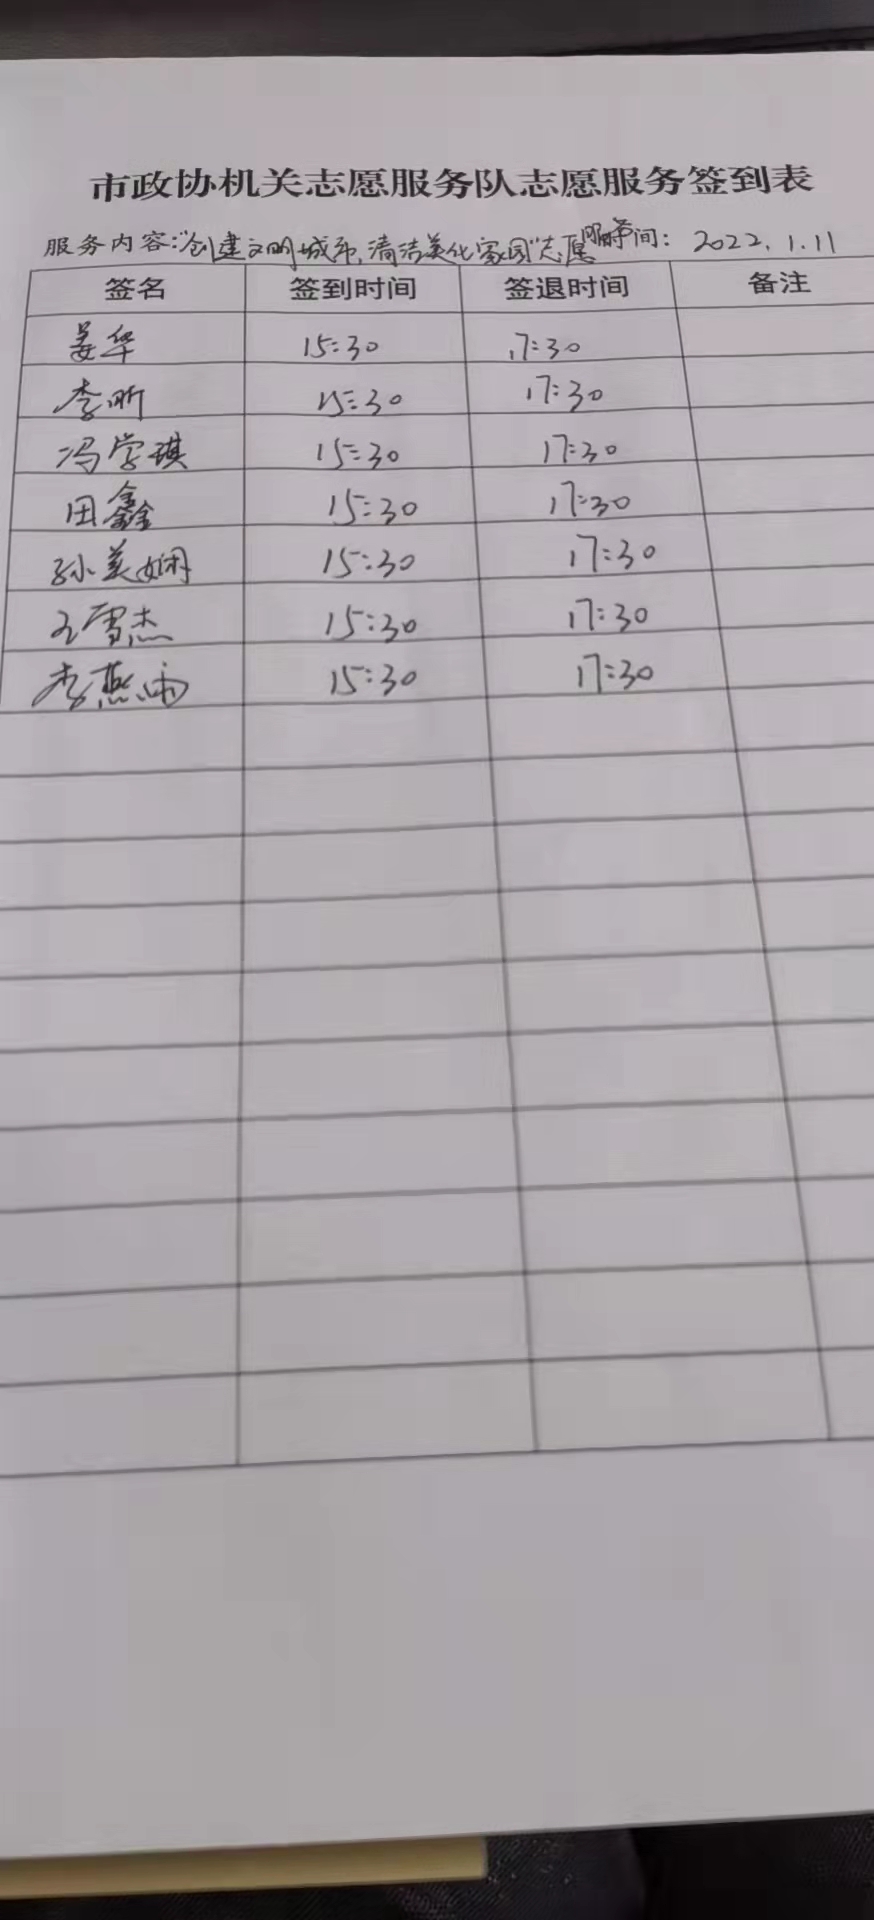 市政协机关志愿服务队志愿服务签到表
服务内容:"创建文明城市,清洁美化家园"志愿服务 时间: 2022.1.11
签名 签到时间 签退时间 备注
姜华 15:30 17:30
李昕 15:30 17:30
冯学琪 15:30 17:30
田鑫 15:30 17:30
孙美娴 15:30 17:30
王雪杰 15:30 17:30
李燕雨 15:30 17:30